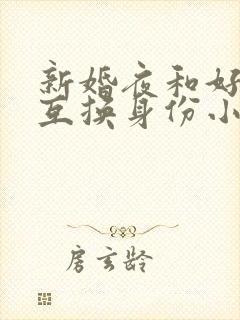 新婚夜和好
互换身份小
房玄龄